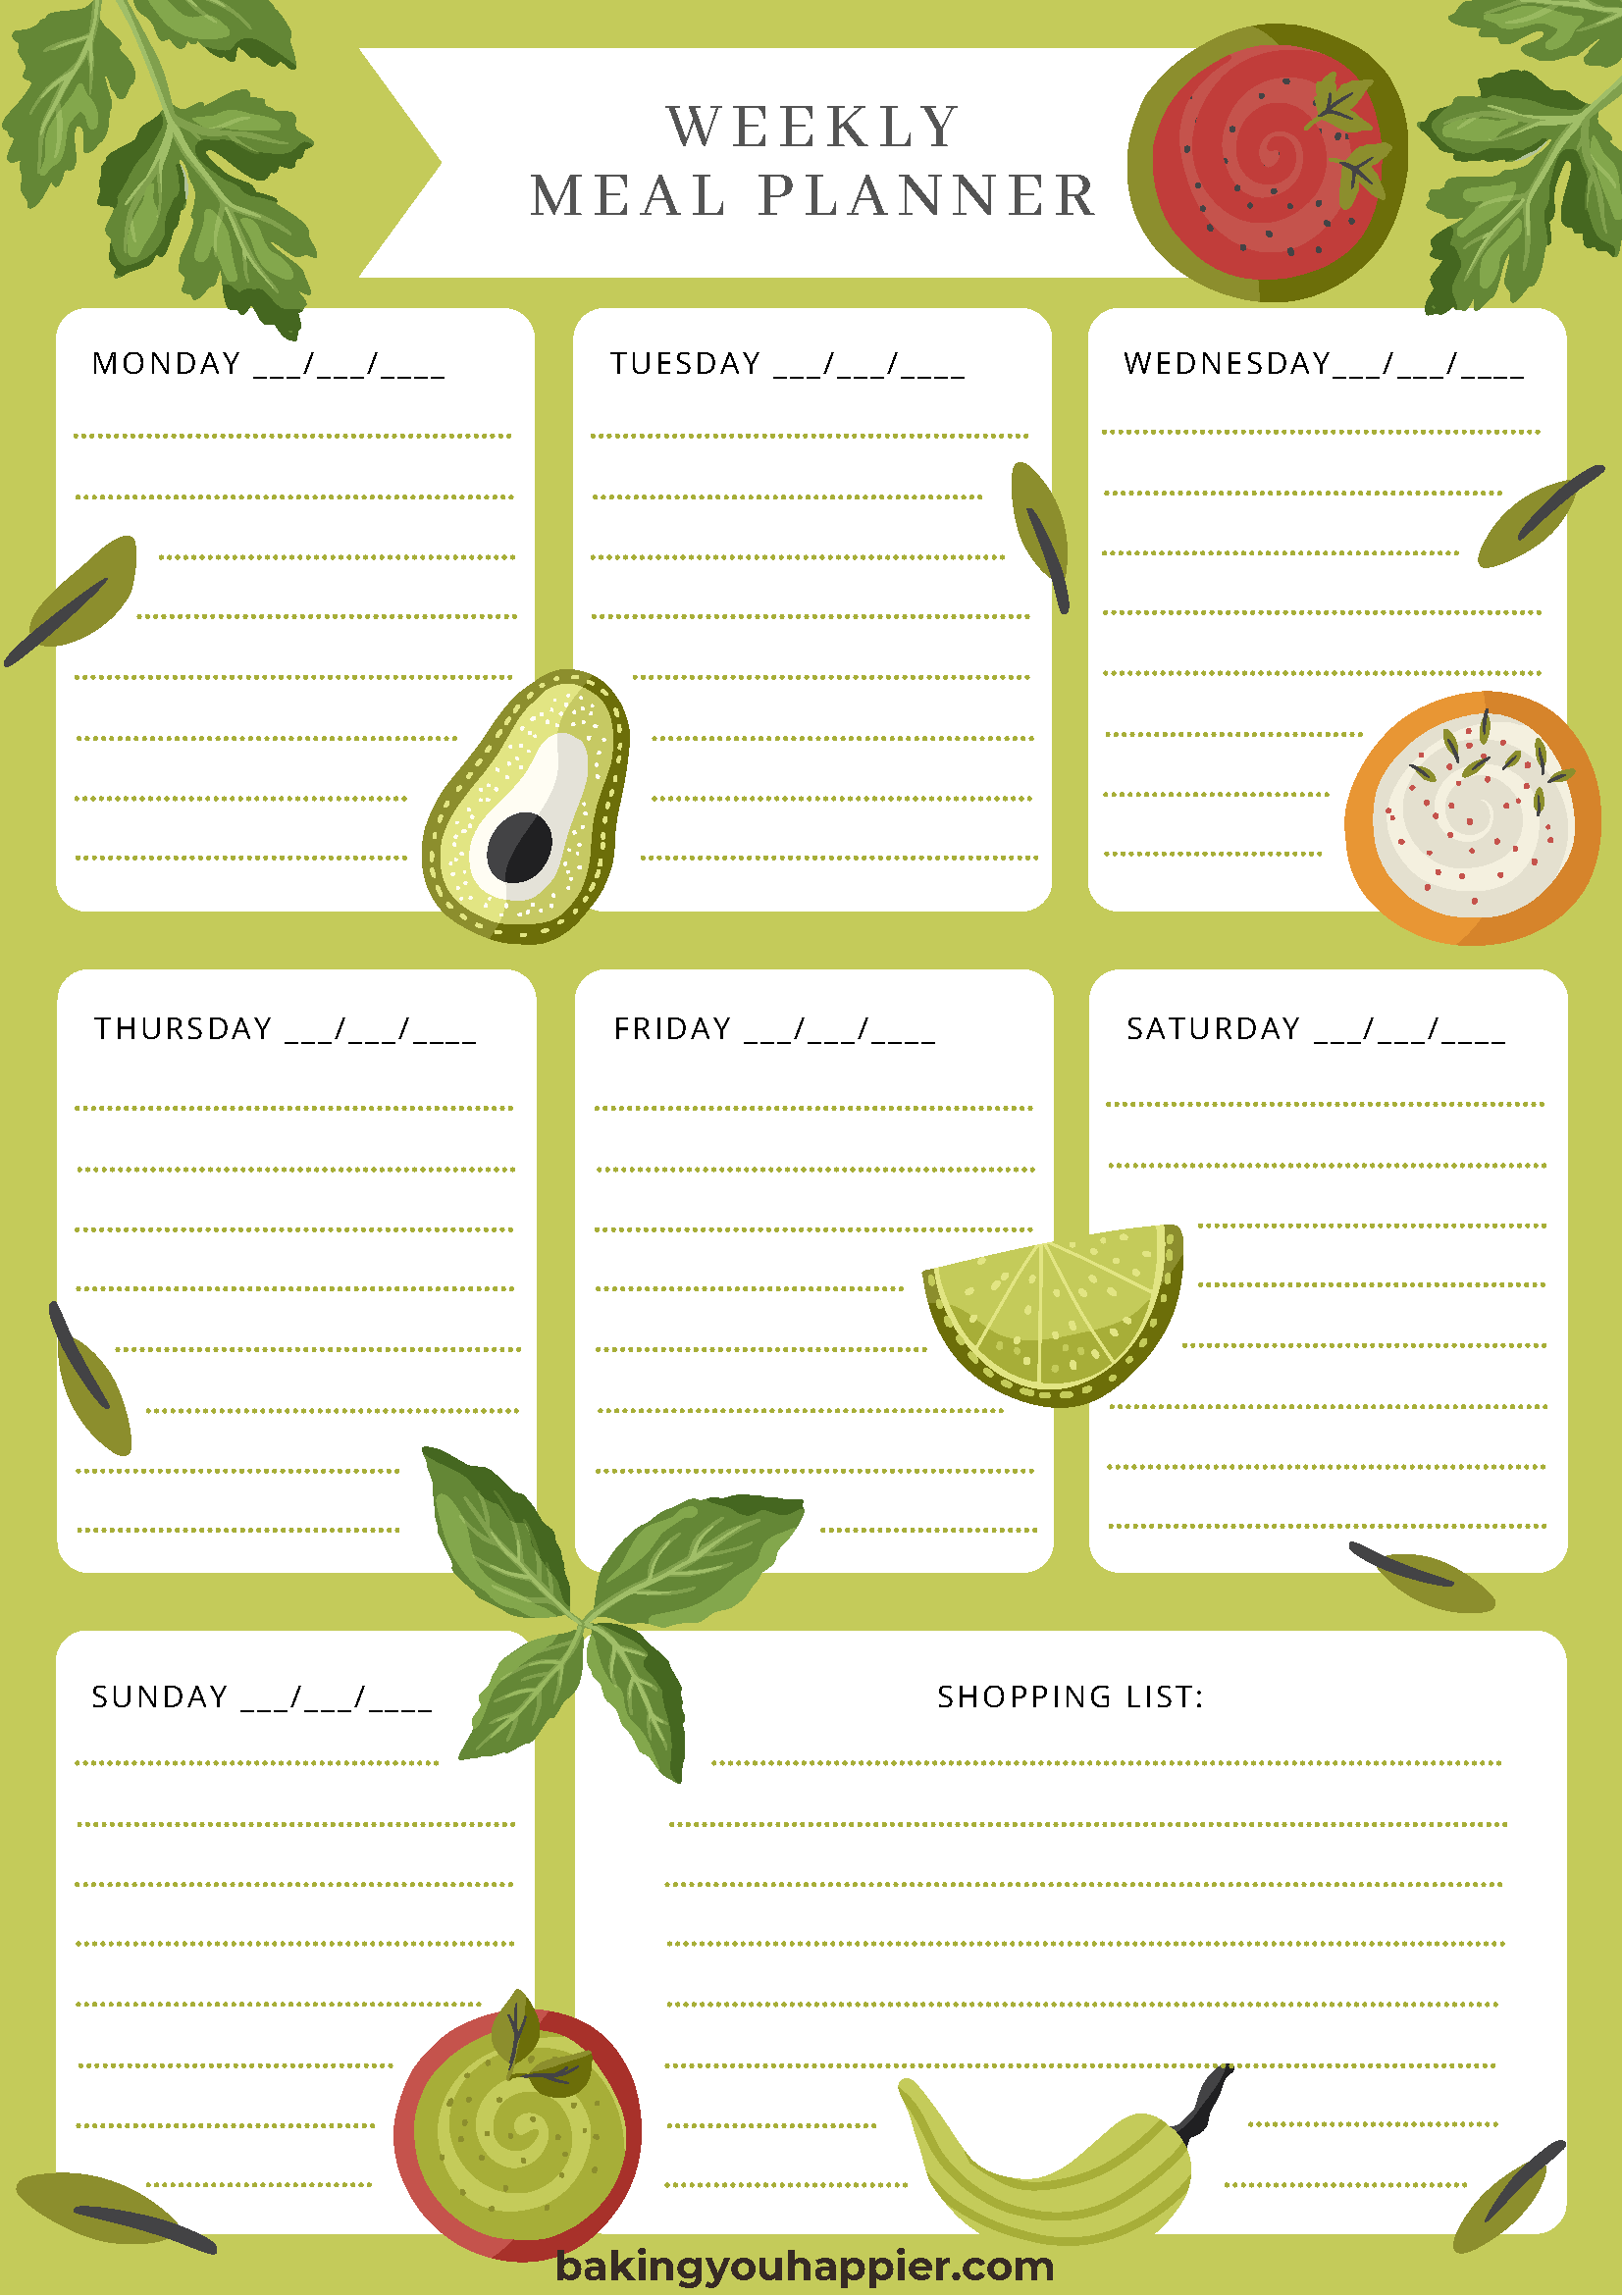 WEEKLY
MEAL PLANNER
MONDAY ___/___/____
TUESDAY ___/___/____
WEDNESDAY___/___/____
THURSDAY ___/___/____
FRIDAY ___/___/____
SATURDAY ___/___/____
SUNDAY ___/___/____
SHOPPING LIST:
bakingyouhappier.com